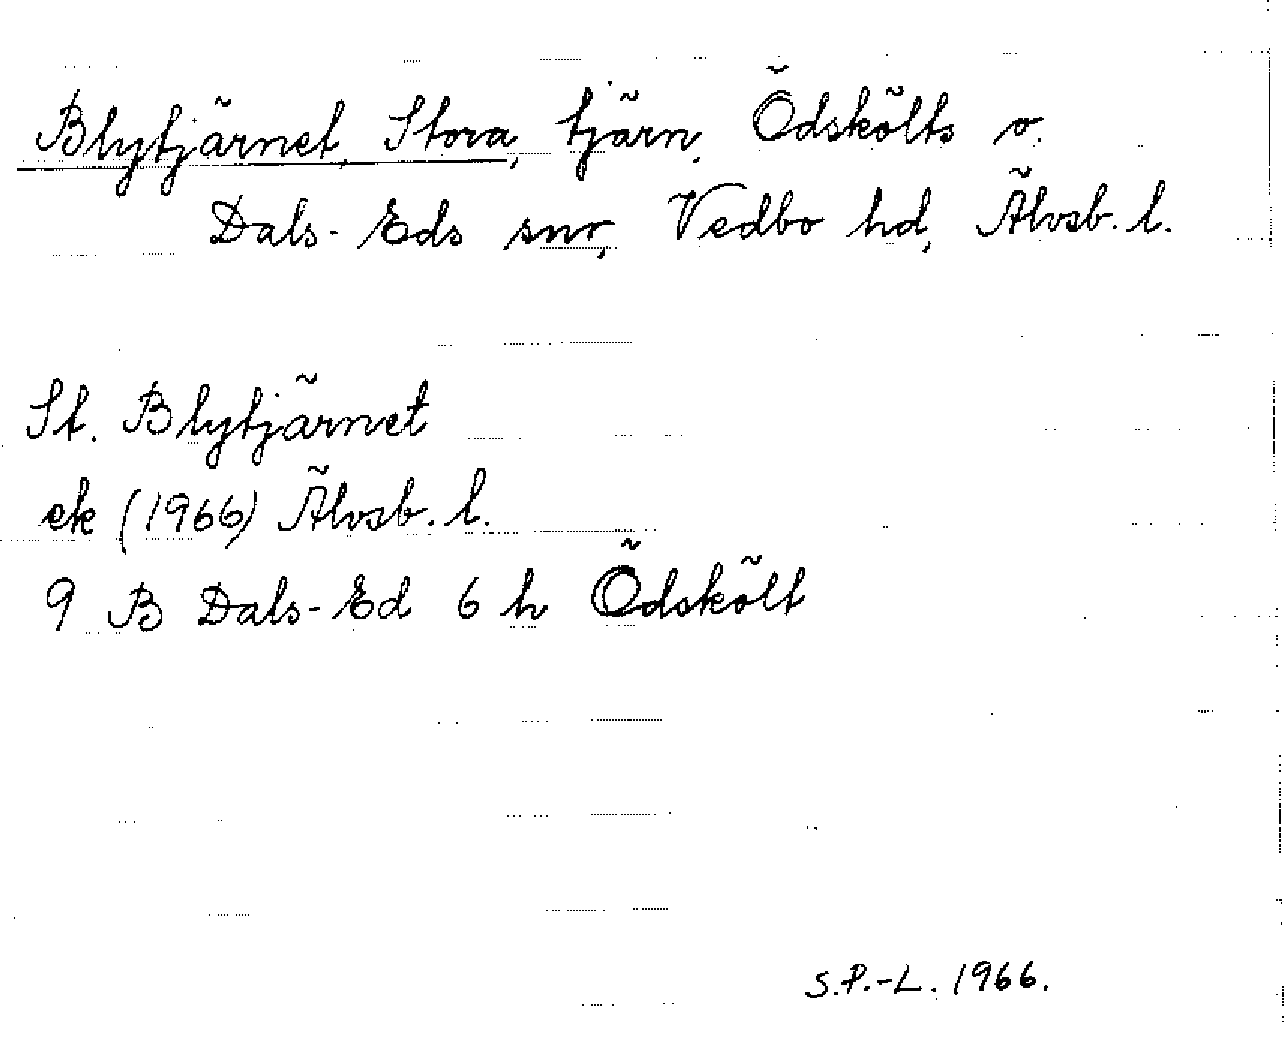 Blytjärnet, Stora, tjärn, Ödskölts o.
Dals-Eds snr, Vedbo hd, Älvsb. l.
St. Blytjärnet
ek (1966) Älvsb. l.
9 B Dals-Ed 6 h Ödskölt
S.P.-L. 1966.